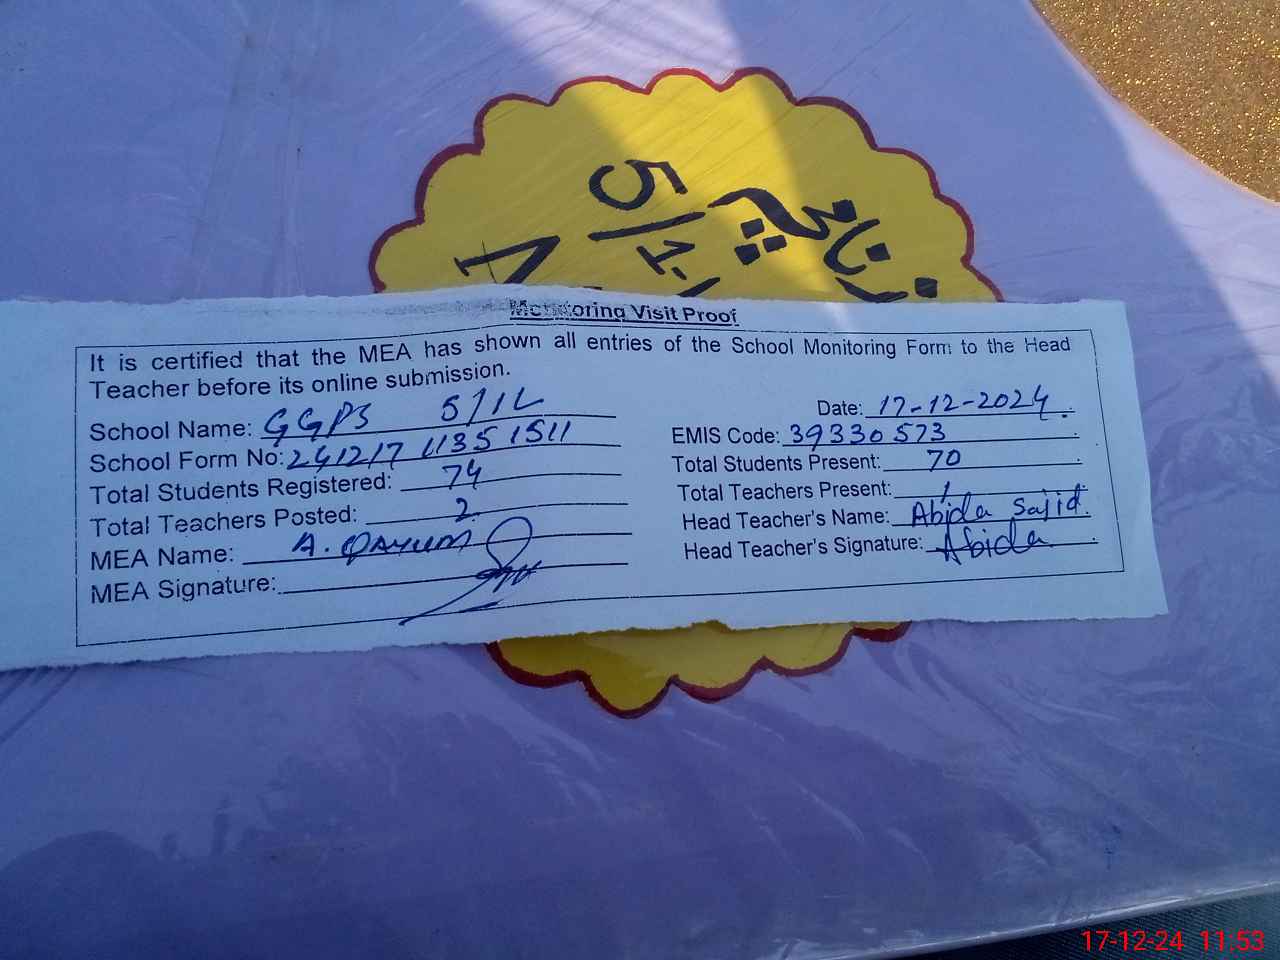 5/1-L
Monitoring Visit Proof
It is certified that the MEA has shown all entries of the School Monitoring Form to the Head
Teacher before its online submission.
School Name: GGPS 5/1L
Date: 17-12-2024
School Form No: 241217 11351511
EMIS Code: 39330573
Total Students Registered: 74
Total Students Present: 70
Total Teachers Posted: 2
Total Teachers Present: 1
MEA Name: A. QAYUM
Head Teacher's Name: Abida Sajid
MEA Signature:
Head Teacher's Signature: Abida
17-12-24 11:53